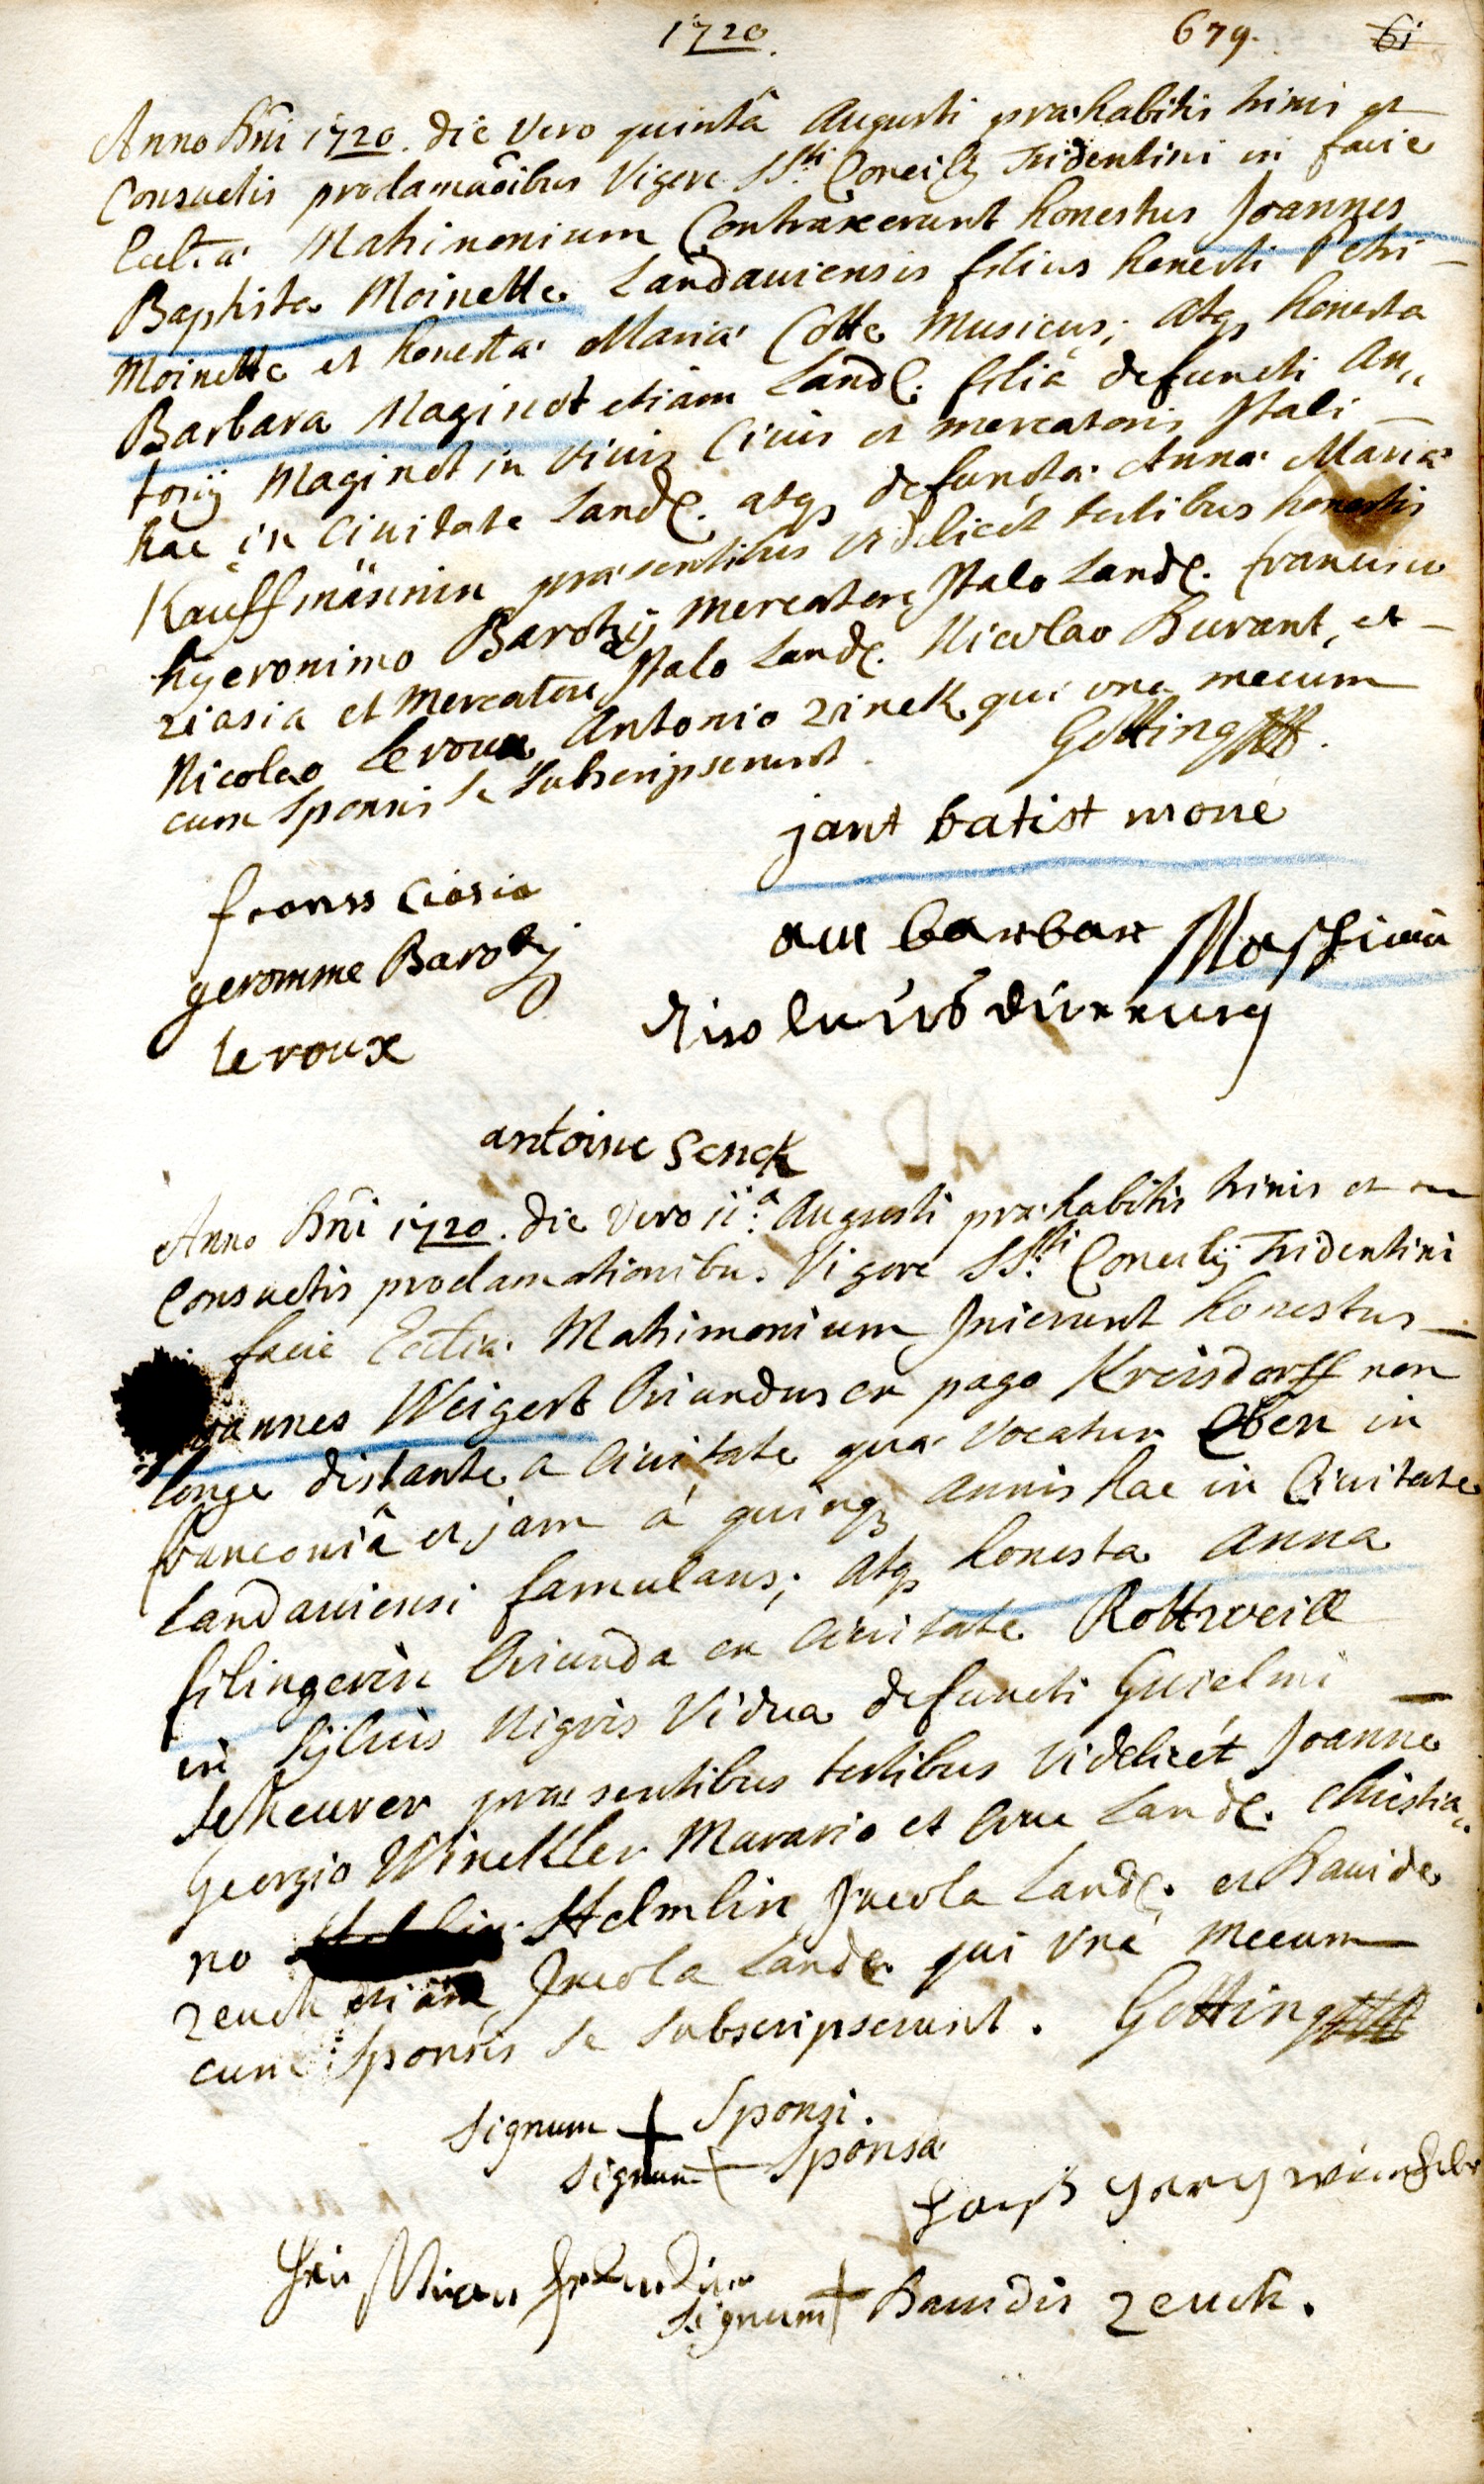 1720. 679. 61
Anno Dni 1720. die vero quintâ Augusti præhabitis trinis et
Consuetis proclamaõibus Vigore SS.ti Concilij Tridentini in facie
Eccl.æ Matrimonium Contraxerunt honestus Joannes
Baptista Moinette Landaviensis filius honesti Petri
Moinette et honestæ Mariæ Cotte Musicus; atq honesta
Barbara Maginot etiam Land. filia defuncti An„
tonij Maginot in vivis Civis et mercatoris Itali
hac in Civitate Land. atq defunctæ Annæ Mariæ
Kauffmännin præsentibus videlicét testibus honestis
hyeronimo Barozij mercatore Italo Land. francisco
ziasia et Mercatore Italo Land. Nicolao Durant, et
Nicolao leroux Antonio zinck qui una mecum
cum Sponsis se subscripserunt. Gotting
jant batist mone
franss ciasia
geromme Barozij
am barbar
leroux
antoine senck
Anno Dni 1720. die vero ii.ª Augusti præhabitis trinis et
Consuetis proclamationibus Vigore SS.ti Concilij Tridentini
facie Eccliæ Matrimonium Inierunt honestus
Joannes Weigert Oriundus ex pago Kreisdorff non
longe distante a Civitate quæ vocatur Eben in
franconiâ et jam á quinq annis hac in Civitate
Landaviensi famulans; atq honesta Anna
filingerin Oriunda ex Civitate Rottweill
in Sylvis Nigris Vidua defuncti Guielmi
scheurer præsentibus testibus Videlicét Joanne
Georgio Winckller Murario et Cive Land. Christia„
no Helmlin Incola Land. et Davide
zeuck etiam Incola Land. qui unâ mecum
cum Sponsis se subscripserunt. Gotting
Signum + Sponsi.
Signum + Sponsæ
Signum + Davidis zeuck.